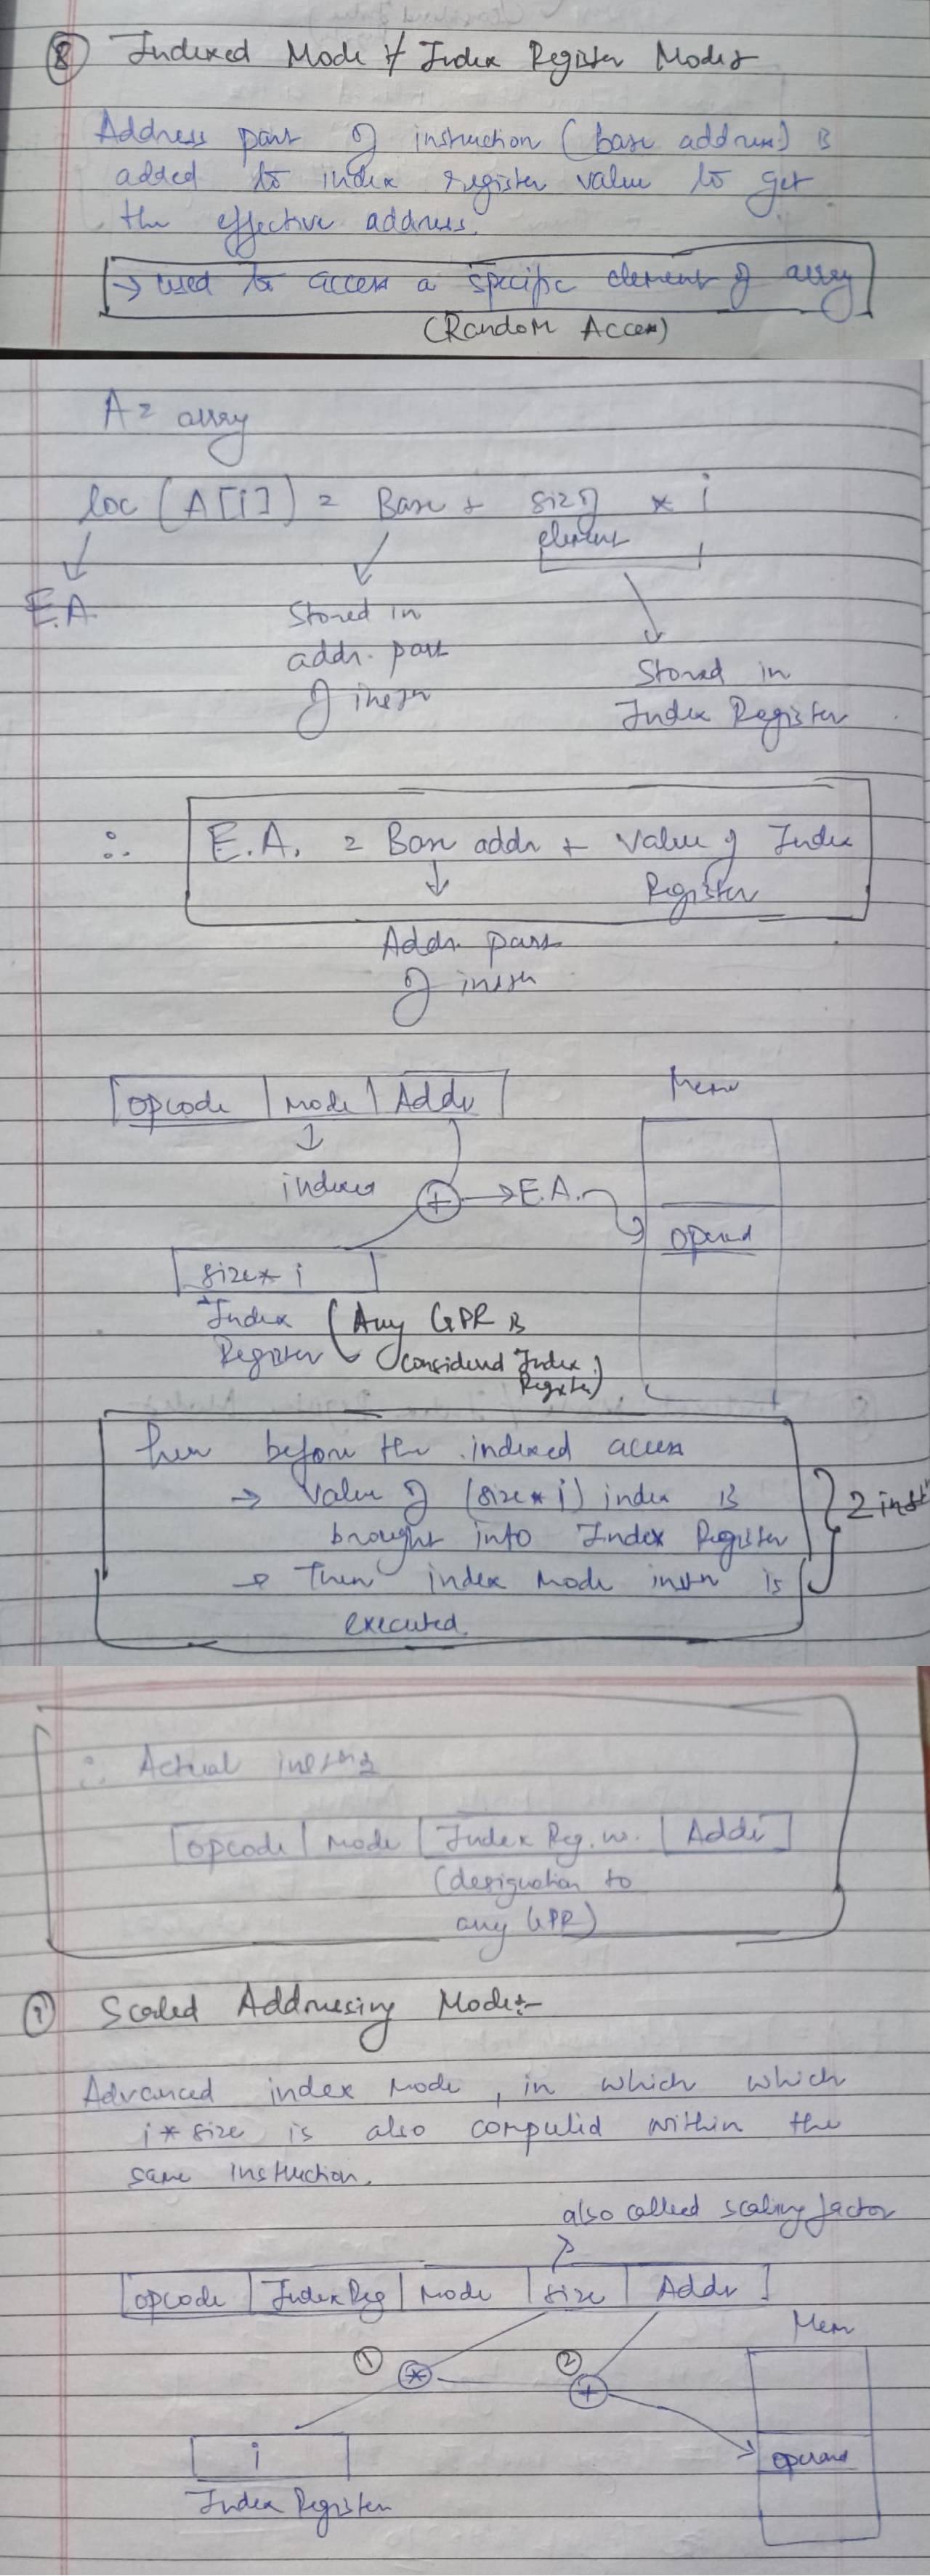 ⑧ Indexed Mode / Index Register Mode:-
Address part of instruction (base address) is
added to index register value to get
the effective address.
→ used to access a specific element of array
(Random Access)
A = array
loc (A[i]) = Base + size of element * i
E.A.
Stored in
addr. part
of instn
Stored in
Index Register
∴ E.A. = Base addr + Value of Index
Register
Addr. part
of instn
opcode | Mode | Addr
Mem
indexed
+ → E.A.
operand
size * i
Index (Any GPR is
Register considered Index
Register)
before the indexed access
→ Value of (size * i) index is
brought into Index Register
2 inst
→ Then index mode instn is
executed.
∴ Actual
opcode | Mode | Index Reg. | Addr
(designation to
any GPR)
① Scaled Addressing Mode:-
Advanced index mode, in which which
i * size is also computed within the
same instruction.
also called scaling factor
opcode | Index Reg | Mode | size | Addr
Mem
① * ② +
i
operand
Index Register